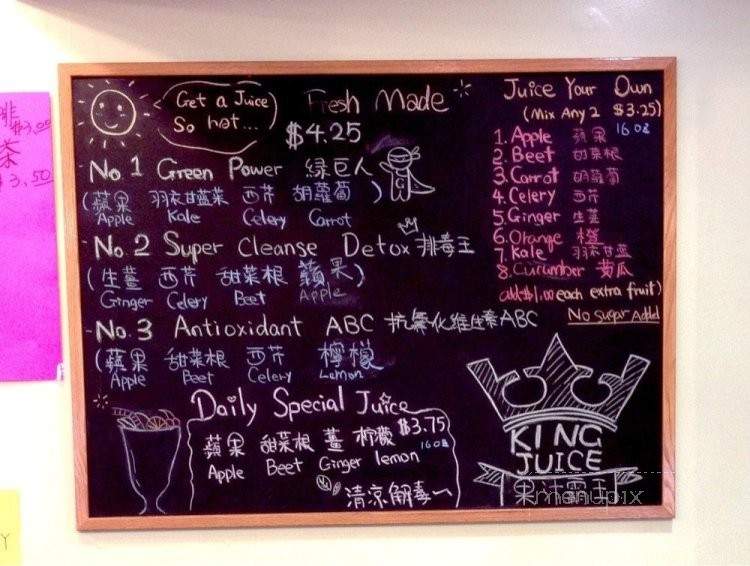 Get a Juice
So hot...
Fresh Made
$4.25
No. 1 Green Power 綠巨人
(蘋果 羽衣甘藍菜 西芹 胡蘿蔔)
Apple Kale Celery Carrot
No. 2 Super Cleanse Detox 排毒王
(生薑 西芹 甜菜根 蘋果)
Ginger Celery Beet Apple
No. 3 Antioxidant ABC 抗氧化維生素ABC
(蘋果 甜菜根 西芹 檸檬)
Apple Beet Celery Lemon
Daily Special Juice
蘋果 甜菜根 薑 檸檬 $3.75
16 oz
Apple Beet Ginger lemon
清涼解毒
Juice Your Own
(Mix Any 2 $3.25)
16 oz
1. Apple 蘋果
2. Beet 甜菜根
3. Carrot 胡蘿蔔
4. Celery 西芹
5. Ginger 生薑
6. Orange 橙
7. Kale 羽衣甘藍
8. Cucumber 黄瓜
add $1.00 each extra fruit)
No sugar Add
KING
JUICE
果汁霸王
menupix
$3.00
茶
$3.50
Y